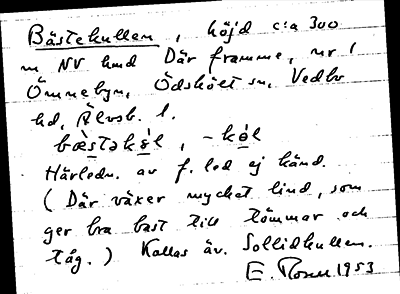 Bästekullen, höjd c:a 300
m NV hmd Där framme, nr 1
Ömmebyn, Ödskölt sn, Vedbo
hd, Älvsb. l.
bæ̀stəkɵ́l, -kɵ́l
Härledn. av f. led ej känd.
(Där växer mycket lind, som
ger bra bast till tömmar och
tåg.) Kallas äv. Sollidkullen.
E. 1953